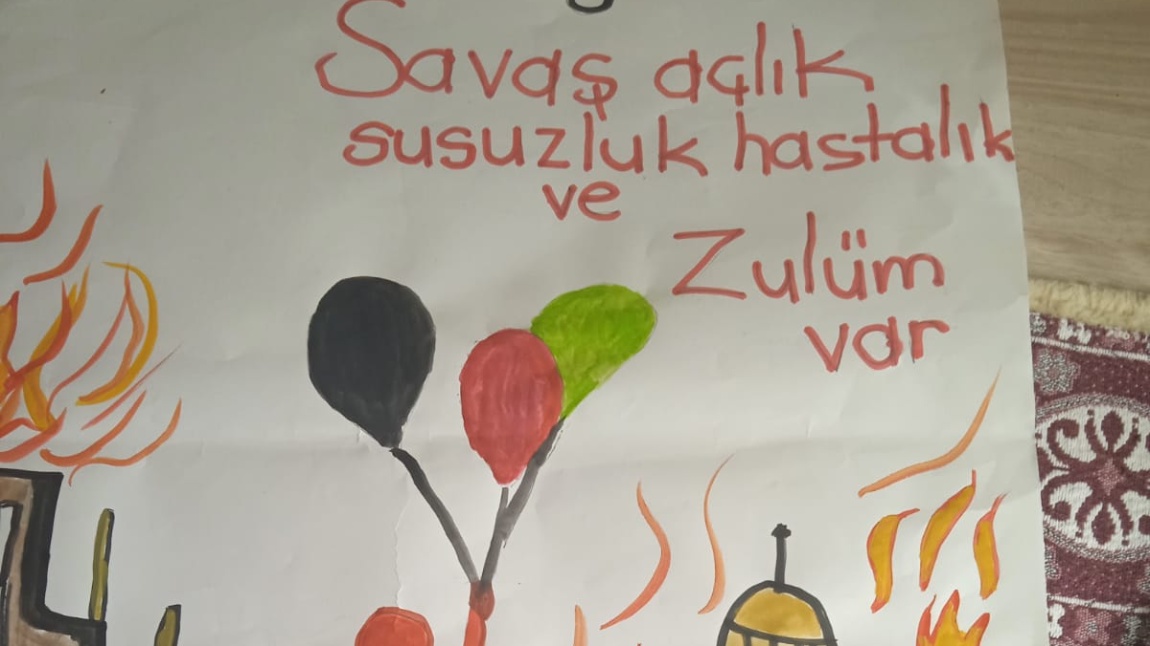 Savaş açlık
susuzluk hastalık
ve
Zulüm
var